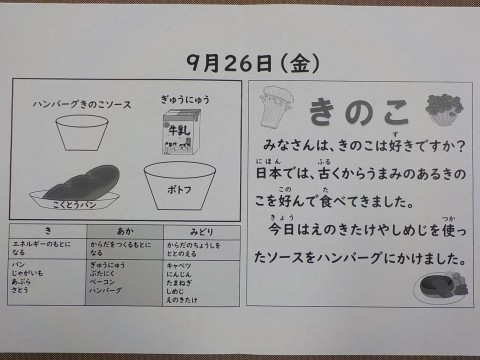 9月26日(金)
ハンバーグきのこソース
ぎゅうにゅう
牛乳
こくとうパン
ポトフ
き
あか
みどり
エネルギーのもとに
なる
からだをつくるもとに
なる
からだのちょうしを
ととのえる
パン
じゃがいも
あぶら
さとう
ぎゅうにゅう
ぶたにく
ベーコン
ハンバーグ
キャベツ
にんじん
たまねぎ
しめじ
えのきたけ
きのこ
す
みなさんは、きのこは好きですか?
にほん ふる
日本では、古くからうまみのあるきの
この た
こを好んで食べてきました。
きょう つか
今日はえのきたけやしめじを使っ
たソースをハンバーグにかけました。